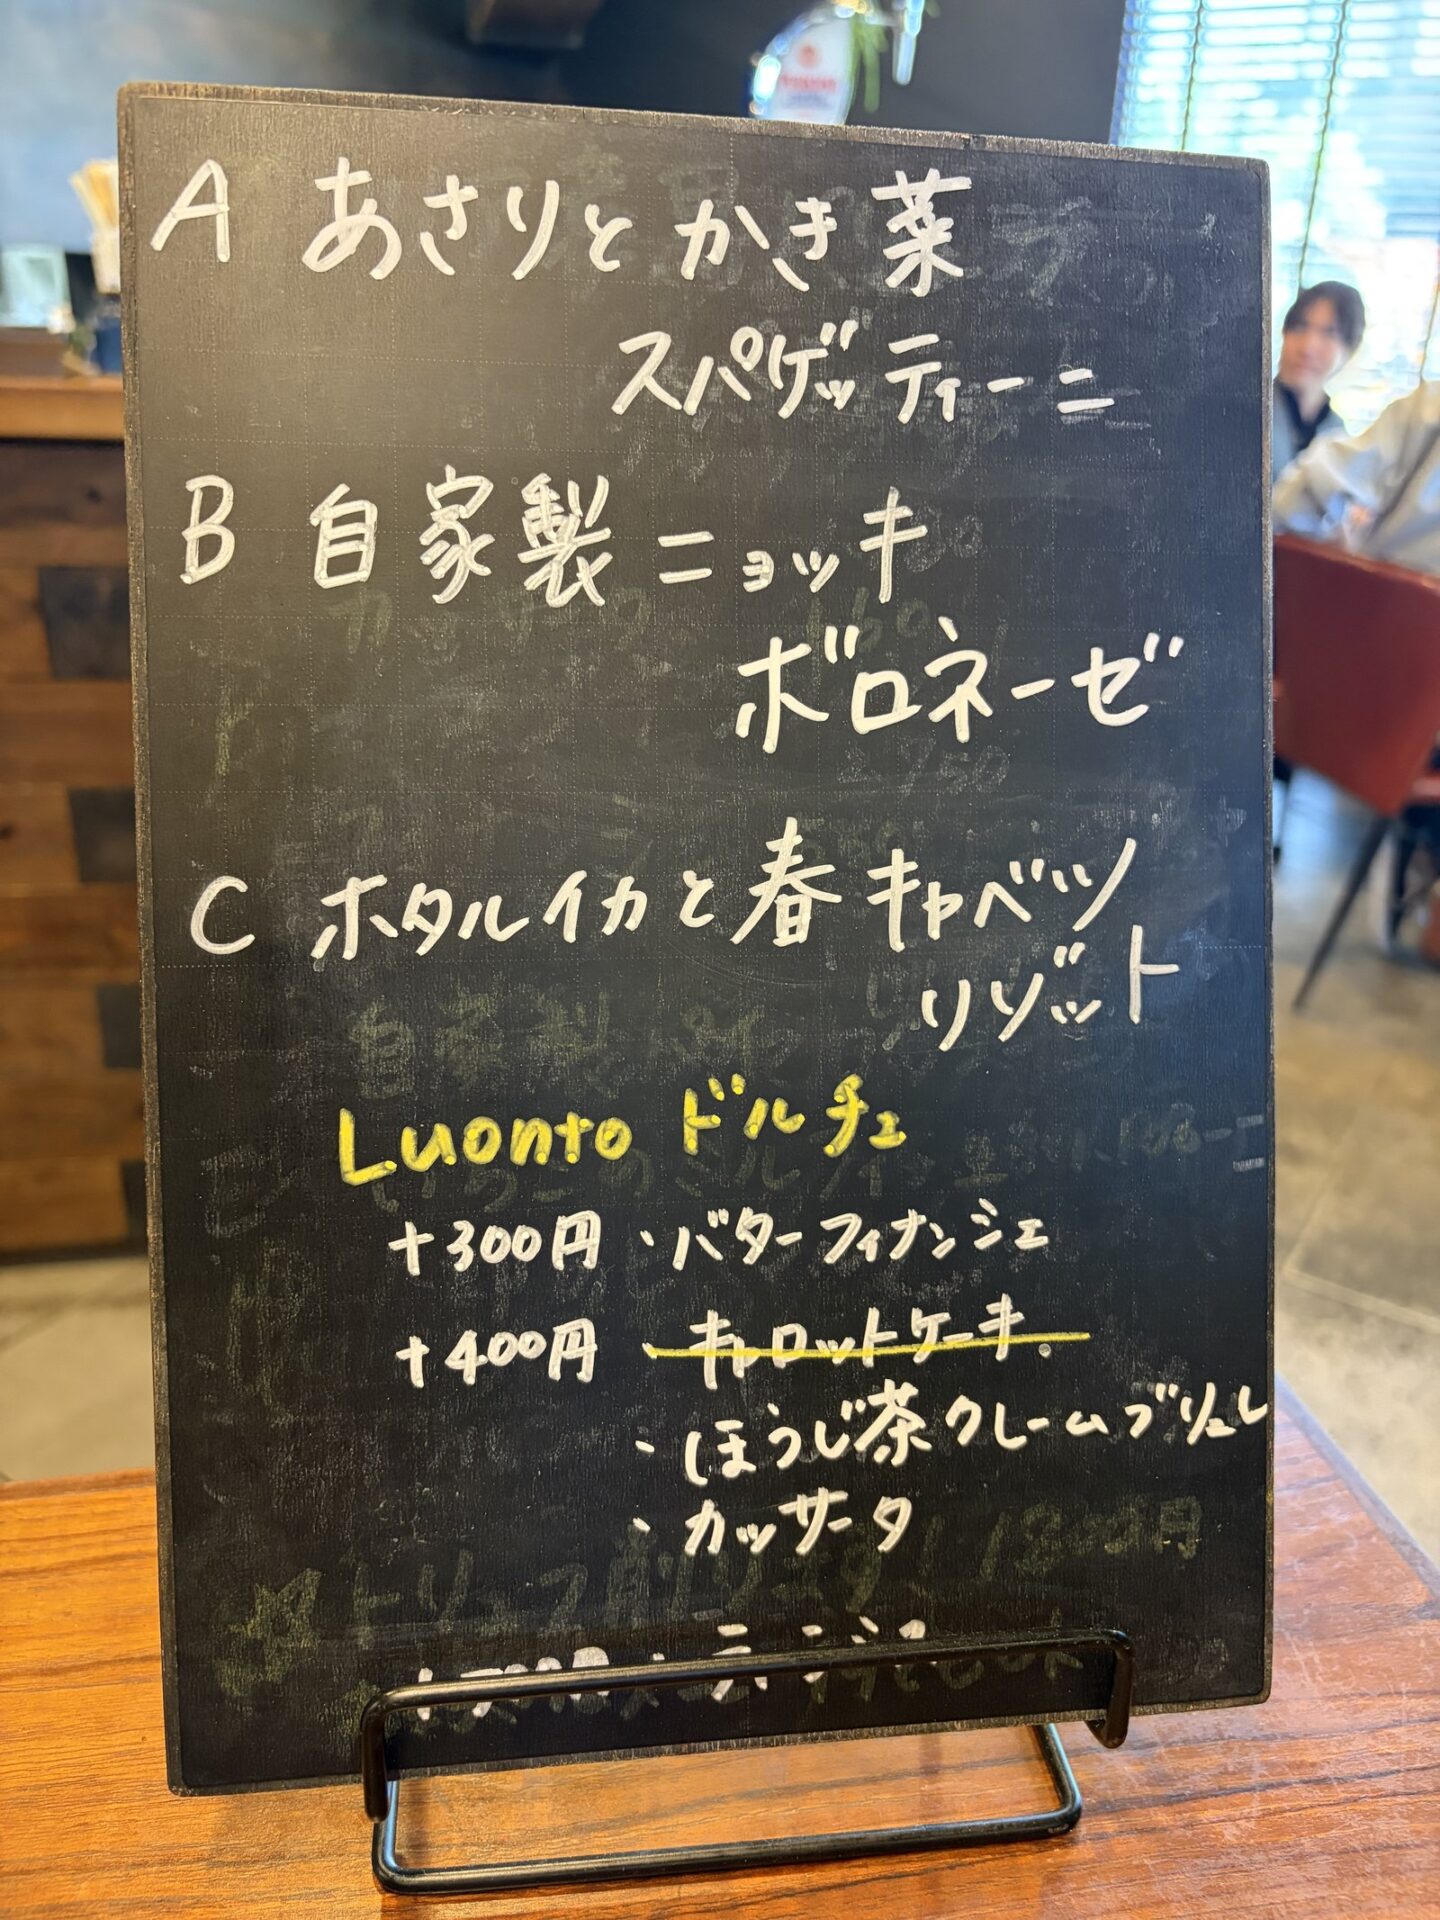 A あさりとかき菜
スパゲッティーニ
B 自家製ニョッキ
ボロネーゼ
C ホタルイカと春キャベツ
リゾット
Luonto ドルチェ
+300円 ・バターフィナンシェ
+400円 ・キャロットケーキ
・ほうじ茶クレームブリュレ
・カッサータ